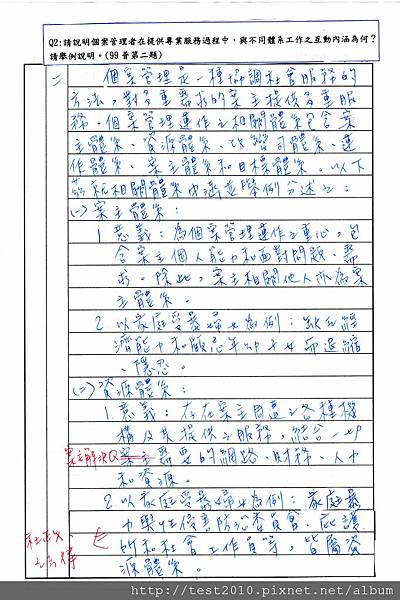 Q2:請說明個案管理者在提供專業服務過程中，與不同體系工作之互動內涵為何？
請舉例說明。(99普第二題)
二 個案管理是一種協調社會服務的
方法，對多重需求的案主提供多重服
務。個案管理運作之相關體系包含案
主體系、資源體系、改變司體系、運
作體系、案主體系和目標體系。以下
茲就相關體系內涵並舉例分述之：
(一)案主體系：
1.意義：為個案管理運作之重心，包
含案主個人能力和面對問題、需
求。除此，案主相關他人亦為案
主體系。
2.以家庭受暴婦女為例：缺乏經
濟能力和顧忌年幼子女而退縮
、隱忍。
(二)資源體系：
1.意義：存在案主周遭之各種機
構及其提供之服務，結合一切
案主解決Q 案主需要的網路、財務、人力
和資源。
2.以家庭受暴婦女為例：家庭暴
力與性侵害防治委員會、庇護
所和社會工作員等，皆屬資
源體系。
社政、
http://test2010.pixnet.net/album